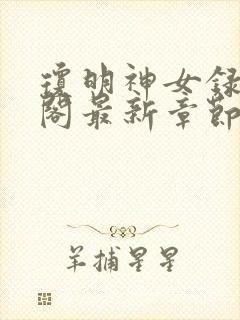 瓊明神女録
閣最新章節
羊捕星星